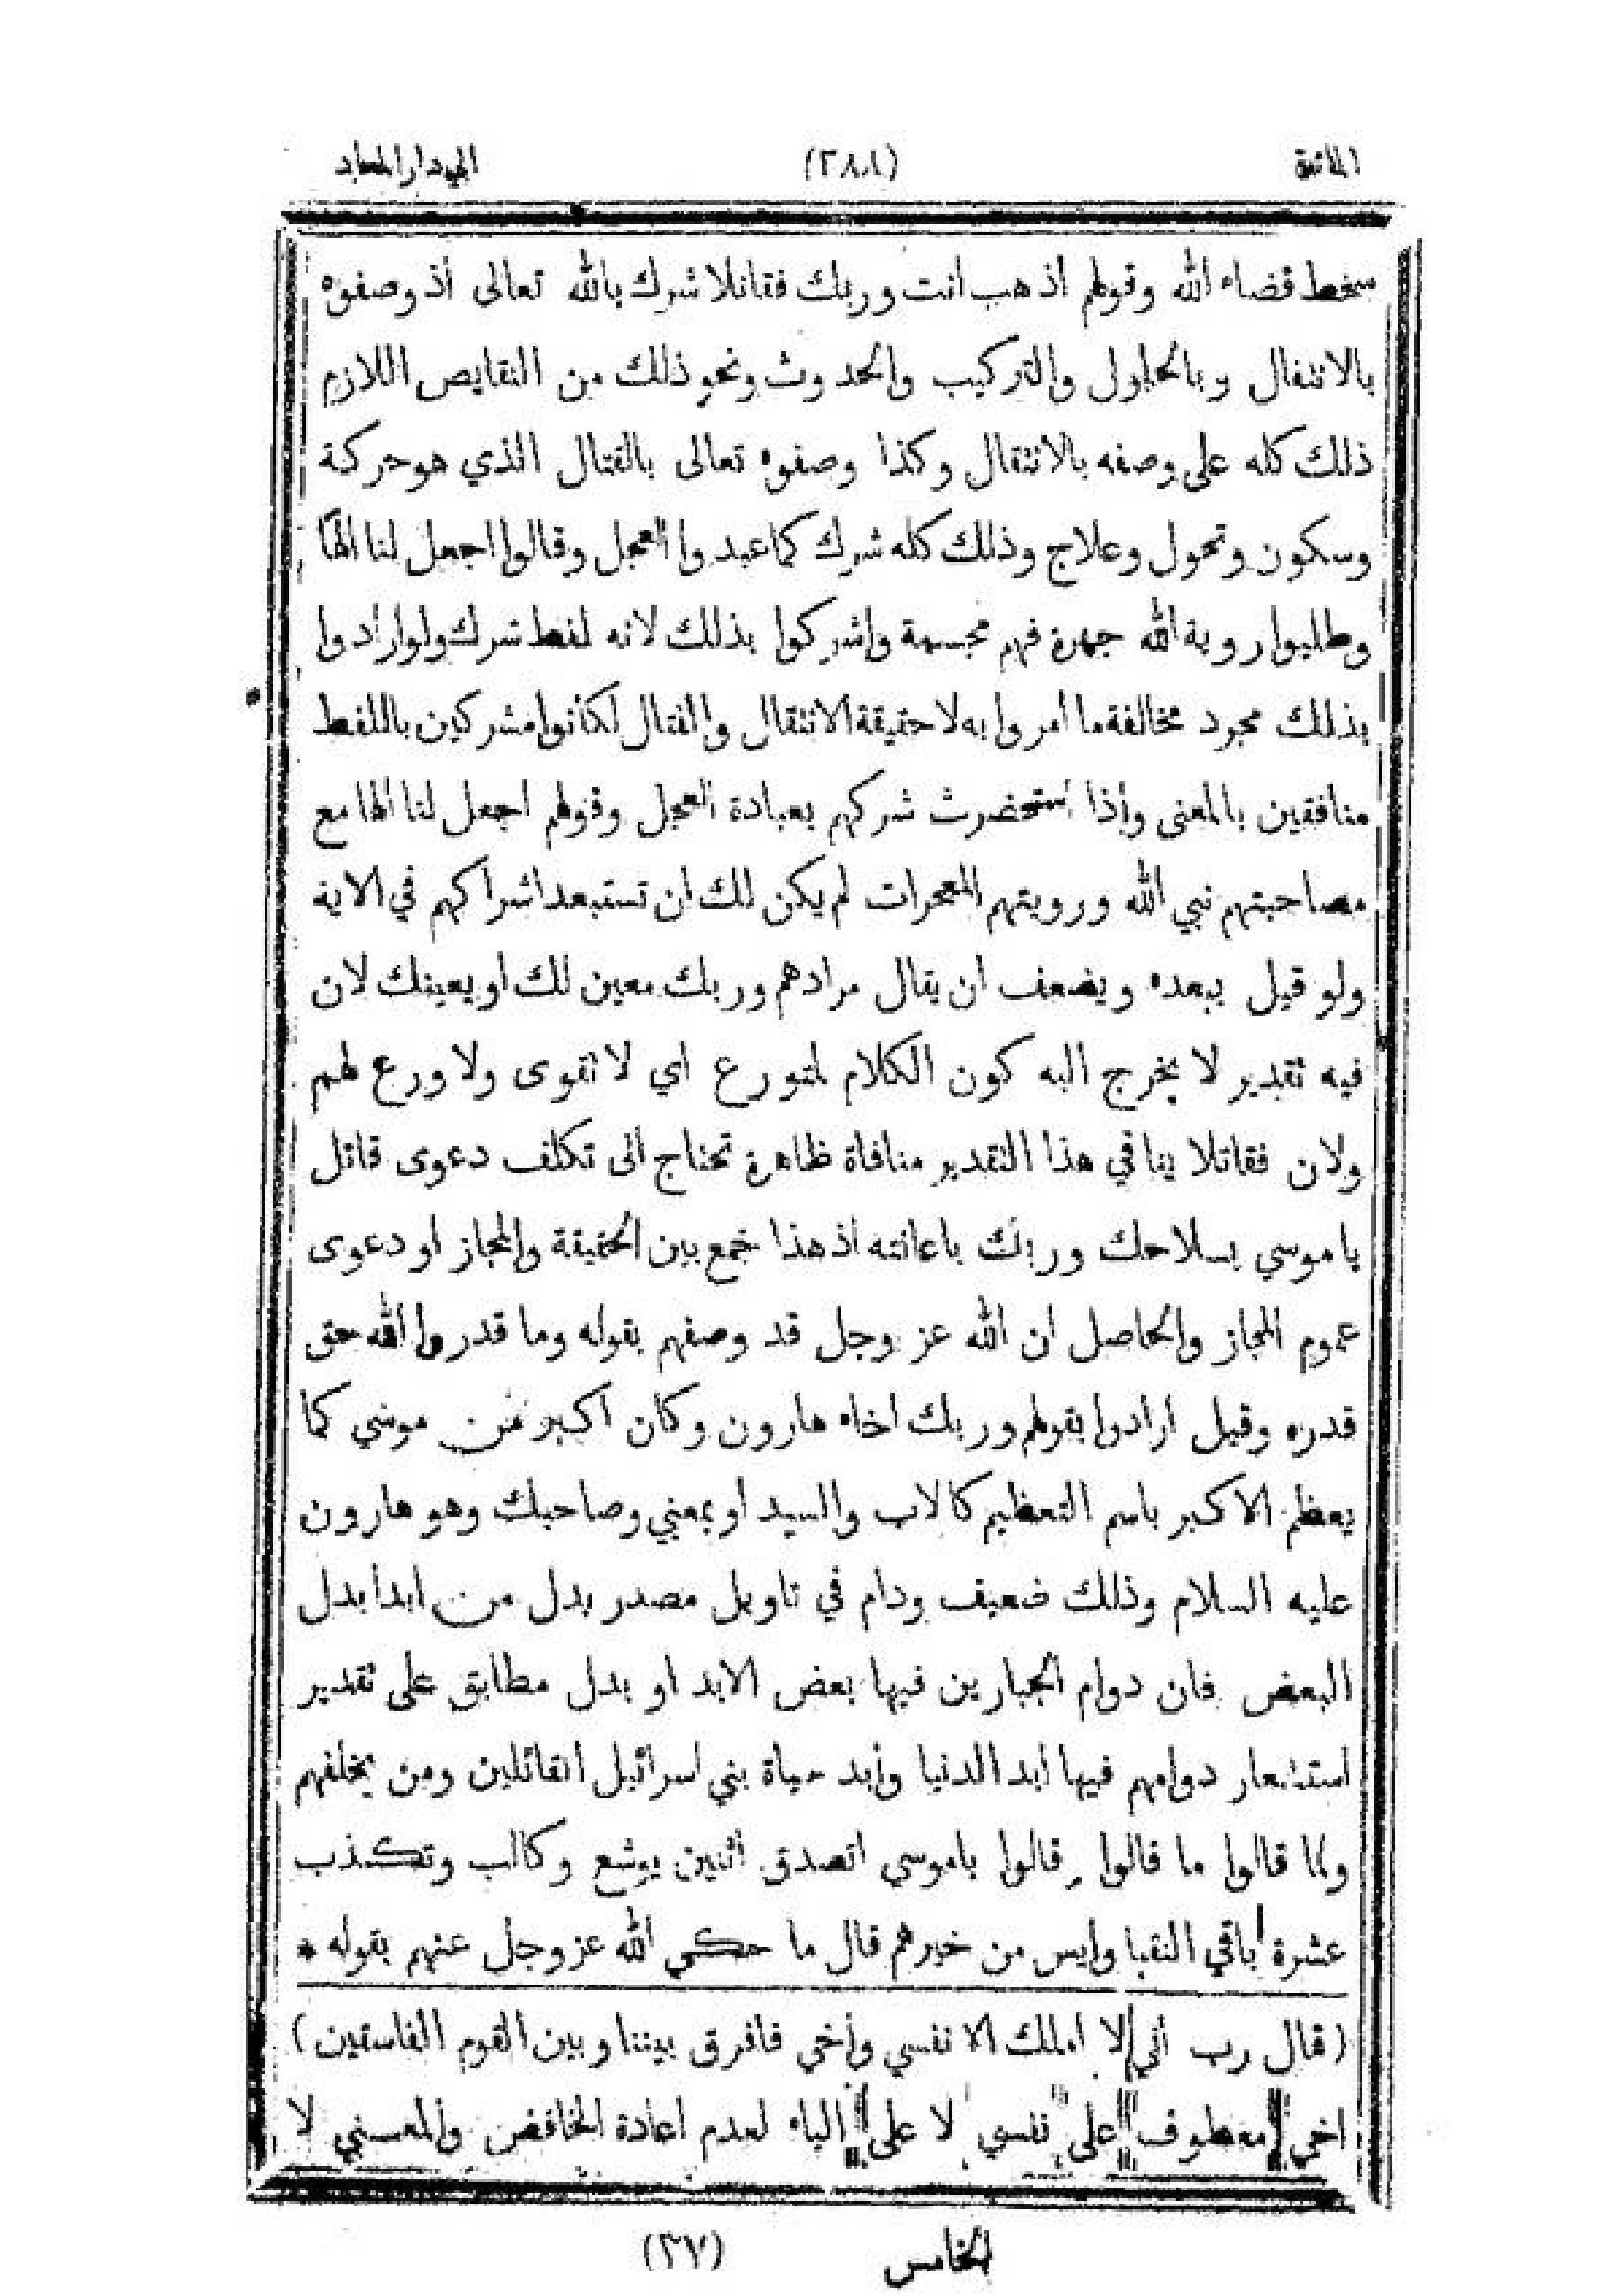 المائدة (٢٨٨)
سخط قضاء الله وقولهم اذهب أنت وربك فقاتلا شرك بالله تعالى أذ وصفوه
بالانتقال وبالحلول والتركيب والحدوث ونحو ذلك من النقايص اللازم
ذلك كله على وصفه بالانتقال وكذا وصفوه تعالى بالقتال الذي هو حركة
وسكون وتحول وعلاج وذلك كله شرك كما عبدوا العجل وقالوا اجعل لنا الهاً
وطلبوا روية الله جهرة فهم مجسمة واشركوا بذلك لانه لفظ شرك ولو ارادوا
بذلك مجرد مخالفة ما امروا به لا حقيقة الانتقال والقتال لكانوا مشركين باللفظ
منافقين بالمعنى وإذا استحضرت شركهم بعبادة العجل وقولهم اجعل لنا الها مع
مصاحبتهم نبي الله ورويتهم المعجرات لم يكن لك ان تستبعد اشراكهم في الاية
ولو قيل ببعده ويضعف ان يقال مرادهم وربك معين لك او يعينك لان
فيه تقدير لا يخرج اليه كون الكلام لمتورع اي لا تقوى ولا ورع لهم
ولان فقاتلا ينافي هذا التقدير منافاة ظاهرة تحتاج الى تكلف دعوى قاتل
ياموسي بسلاحك وربك باعانته اذ هذا جمع بين الحقيقة والمجاز او دعوى
عموم المجاز والحاصل ان الله عز وجل قد وصفهم بقوله وما قدروا الله حق
قدره وقيل ارادوا بقولهم وربك اخاه هارون وكان اكبر من موسي كما
يعظم الاكبر باسم التعظيم كالاب والسيد او بمعني وصاحبك وهو هارون
عليه السلام وذلك ضعيف ودام في تاويل مصدر بدل من ابدا بدل
البعض فان دوام الجبارين فيها بعض الابد او بدل مطابق على تقدير
استشعار دوامهم فيها ابد الدنيا وأبد حياة بني اسرائيل القائلين ومن يخلفهم
ولما قالوا ما قالوا قالوا ياموسي اتصدق اثنين يوشع وكالب وتكذب
عشرة باقي النقبا وايس من خيرهم قال ما حكى الله عز وجل عنهم بقوله *
(قال رب أني لا املك الا نفسي وأخي فافرق بيننا وبين القوم الفاسقين)
اخي معطوف على نفسي لا على الياء لعدم اعادة الخافض والمعني لا
الخامس (٣٧)